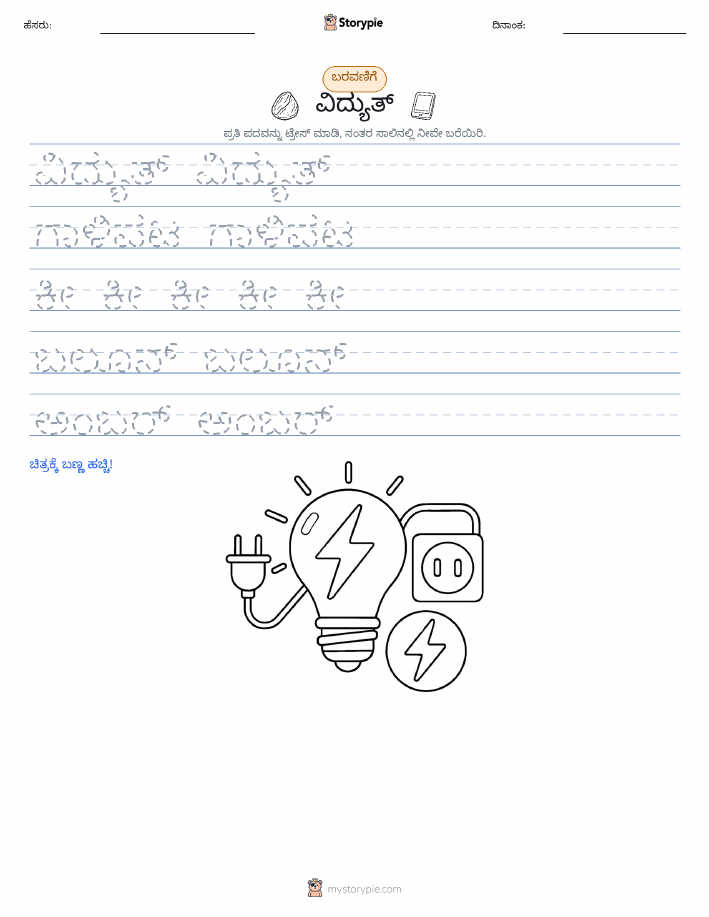 ಹೆಸರು:
Storypie
ದಿನಾಂಕ:
ಬರವಣಿಗೆ
ವಿದ್ಯುತ್
ಪ್ರತಿ ಪದವನ್ನು ಟ್ರೇಸ್ ಮಾಡಿ, ನಂತರ ಸಾಲಿನಲ್ಲಿ ನೀವೇ ಬರೆಯಿರಿ.
ವಿದ್ಯುತ್ ವಿದ್ಯುತ್
ಗಾಳಿಪಟ ಗಾಳಿಪಟ
ಕೀ ಕೀ ಕೀ ಕೀ ಕೀ
ಬಲೂನ್ ಬಲೂನ್
ಅಂಬರ್ ಅಂಬರ್
ಚಿತ್ರಕ್ಕೆ ಬಣ್ಣ ಹಚ್ಚಿ!
mystorypie.com